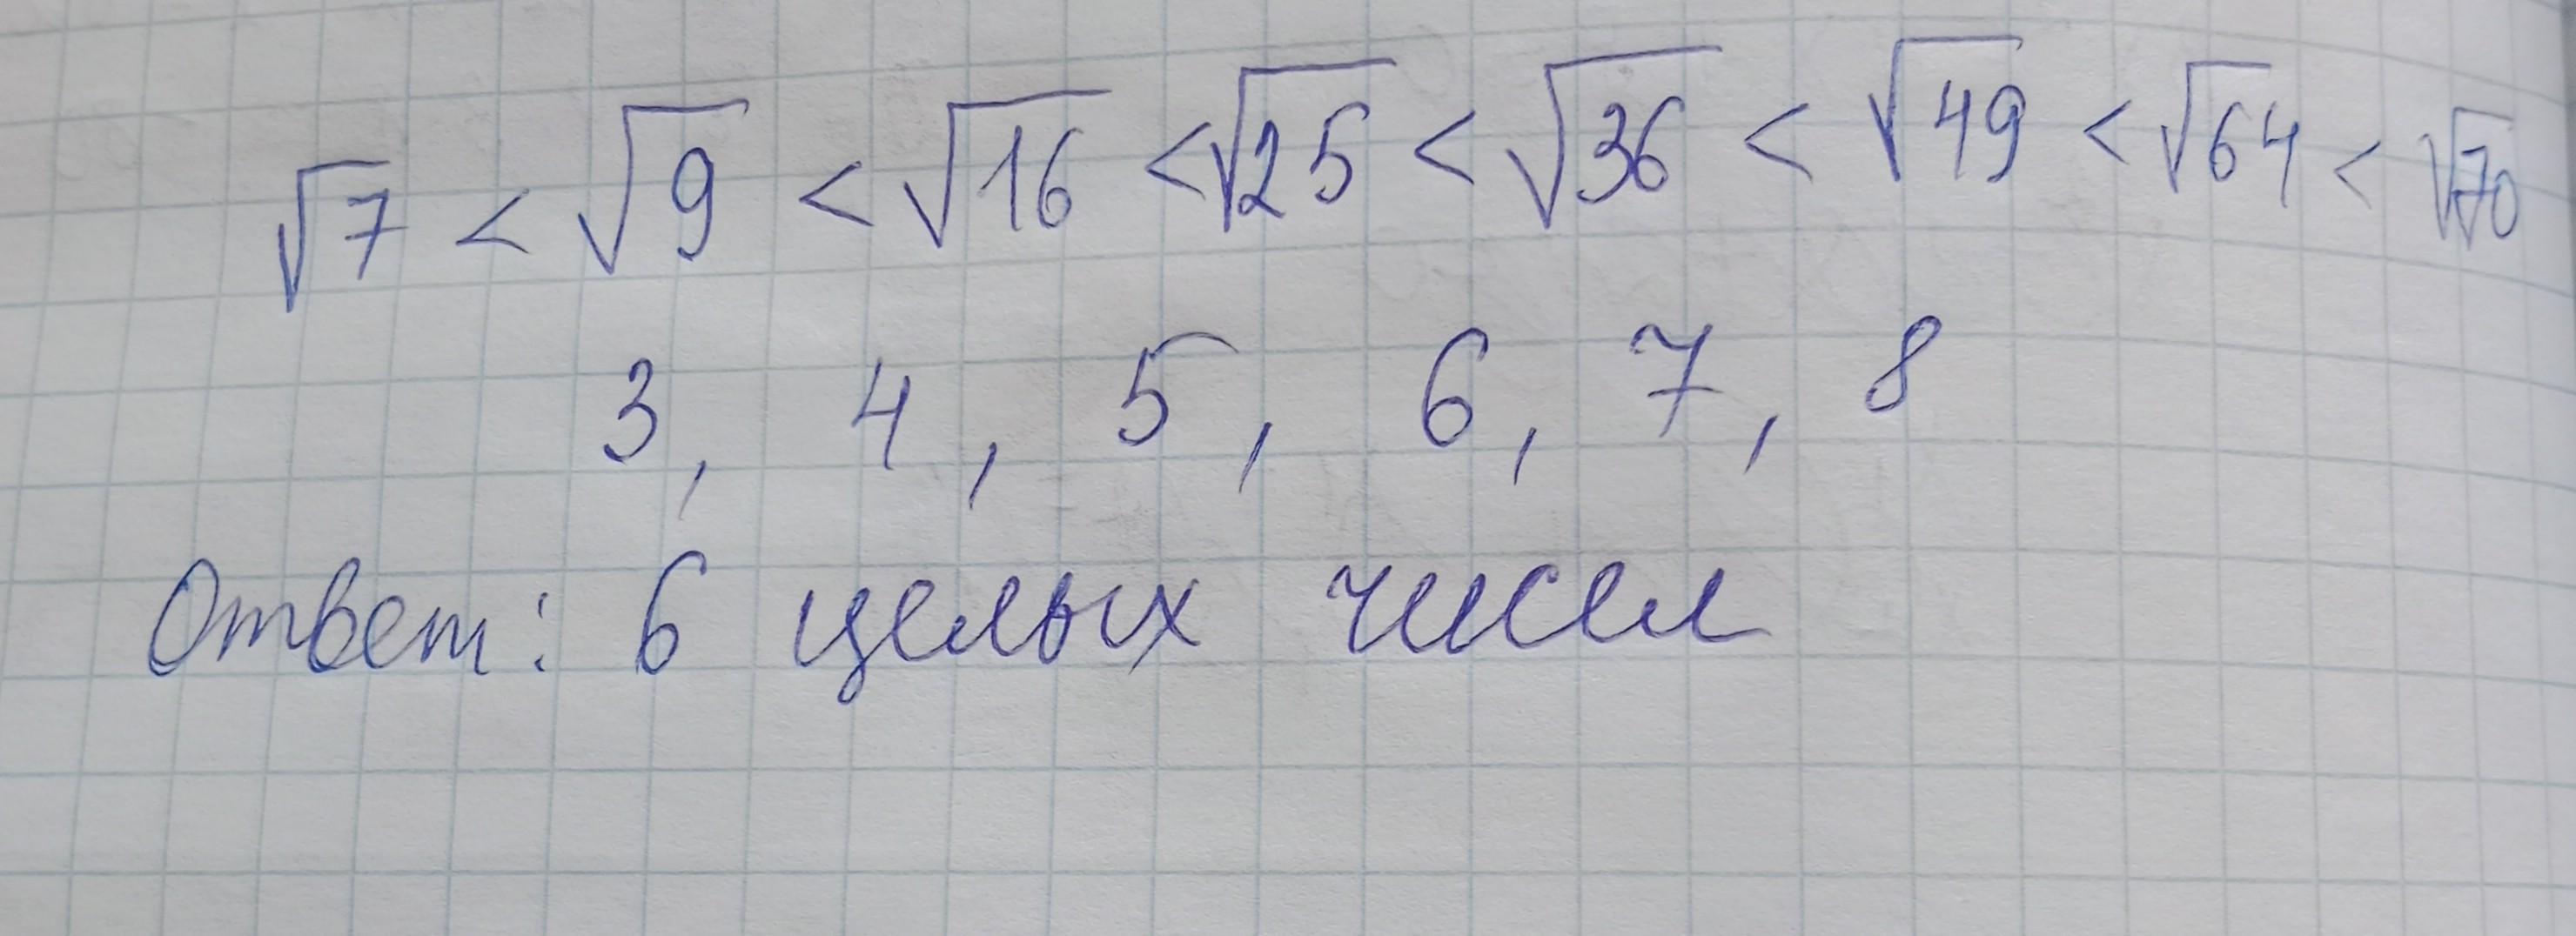 √7 < √9 < √16 < √25 < √36 < √49 < √64 < √70
3, 4, 5, 6, 7, 8
Ответ: 6 целых чисел